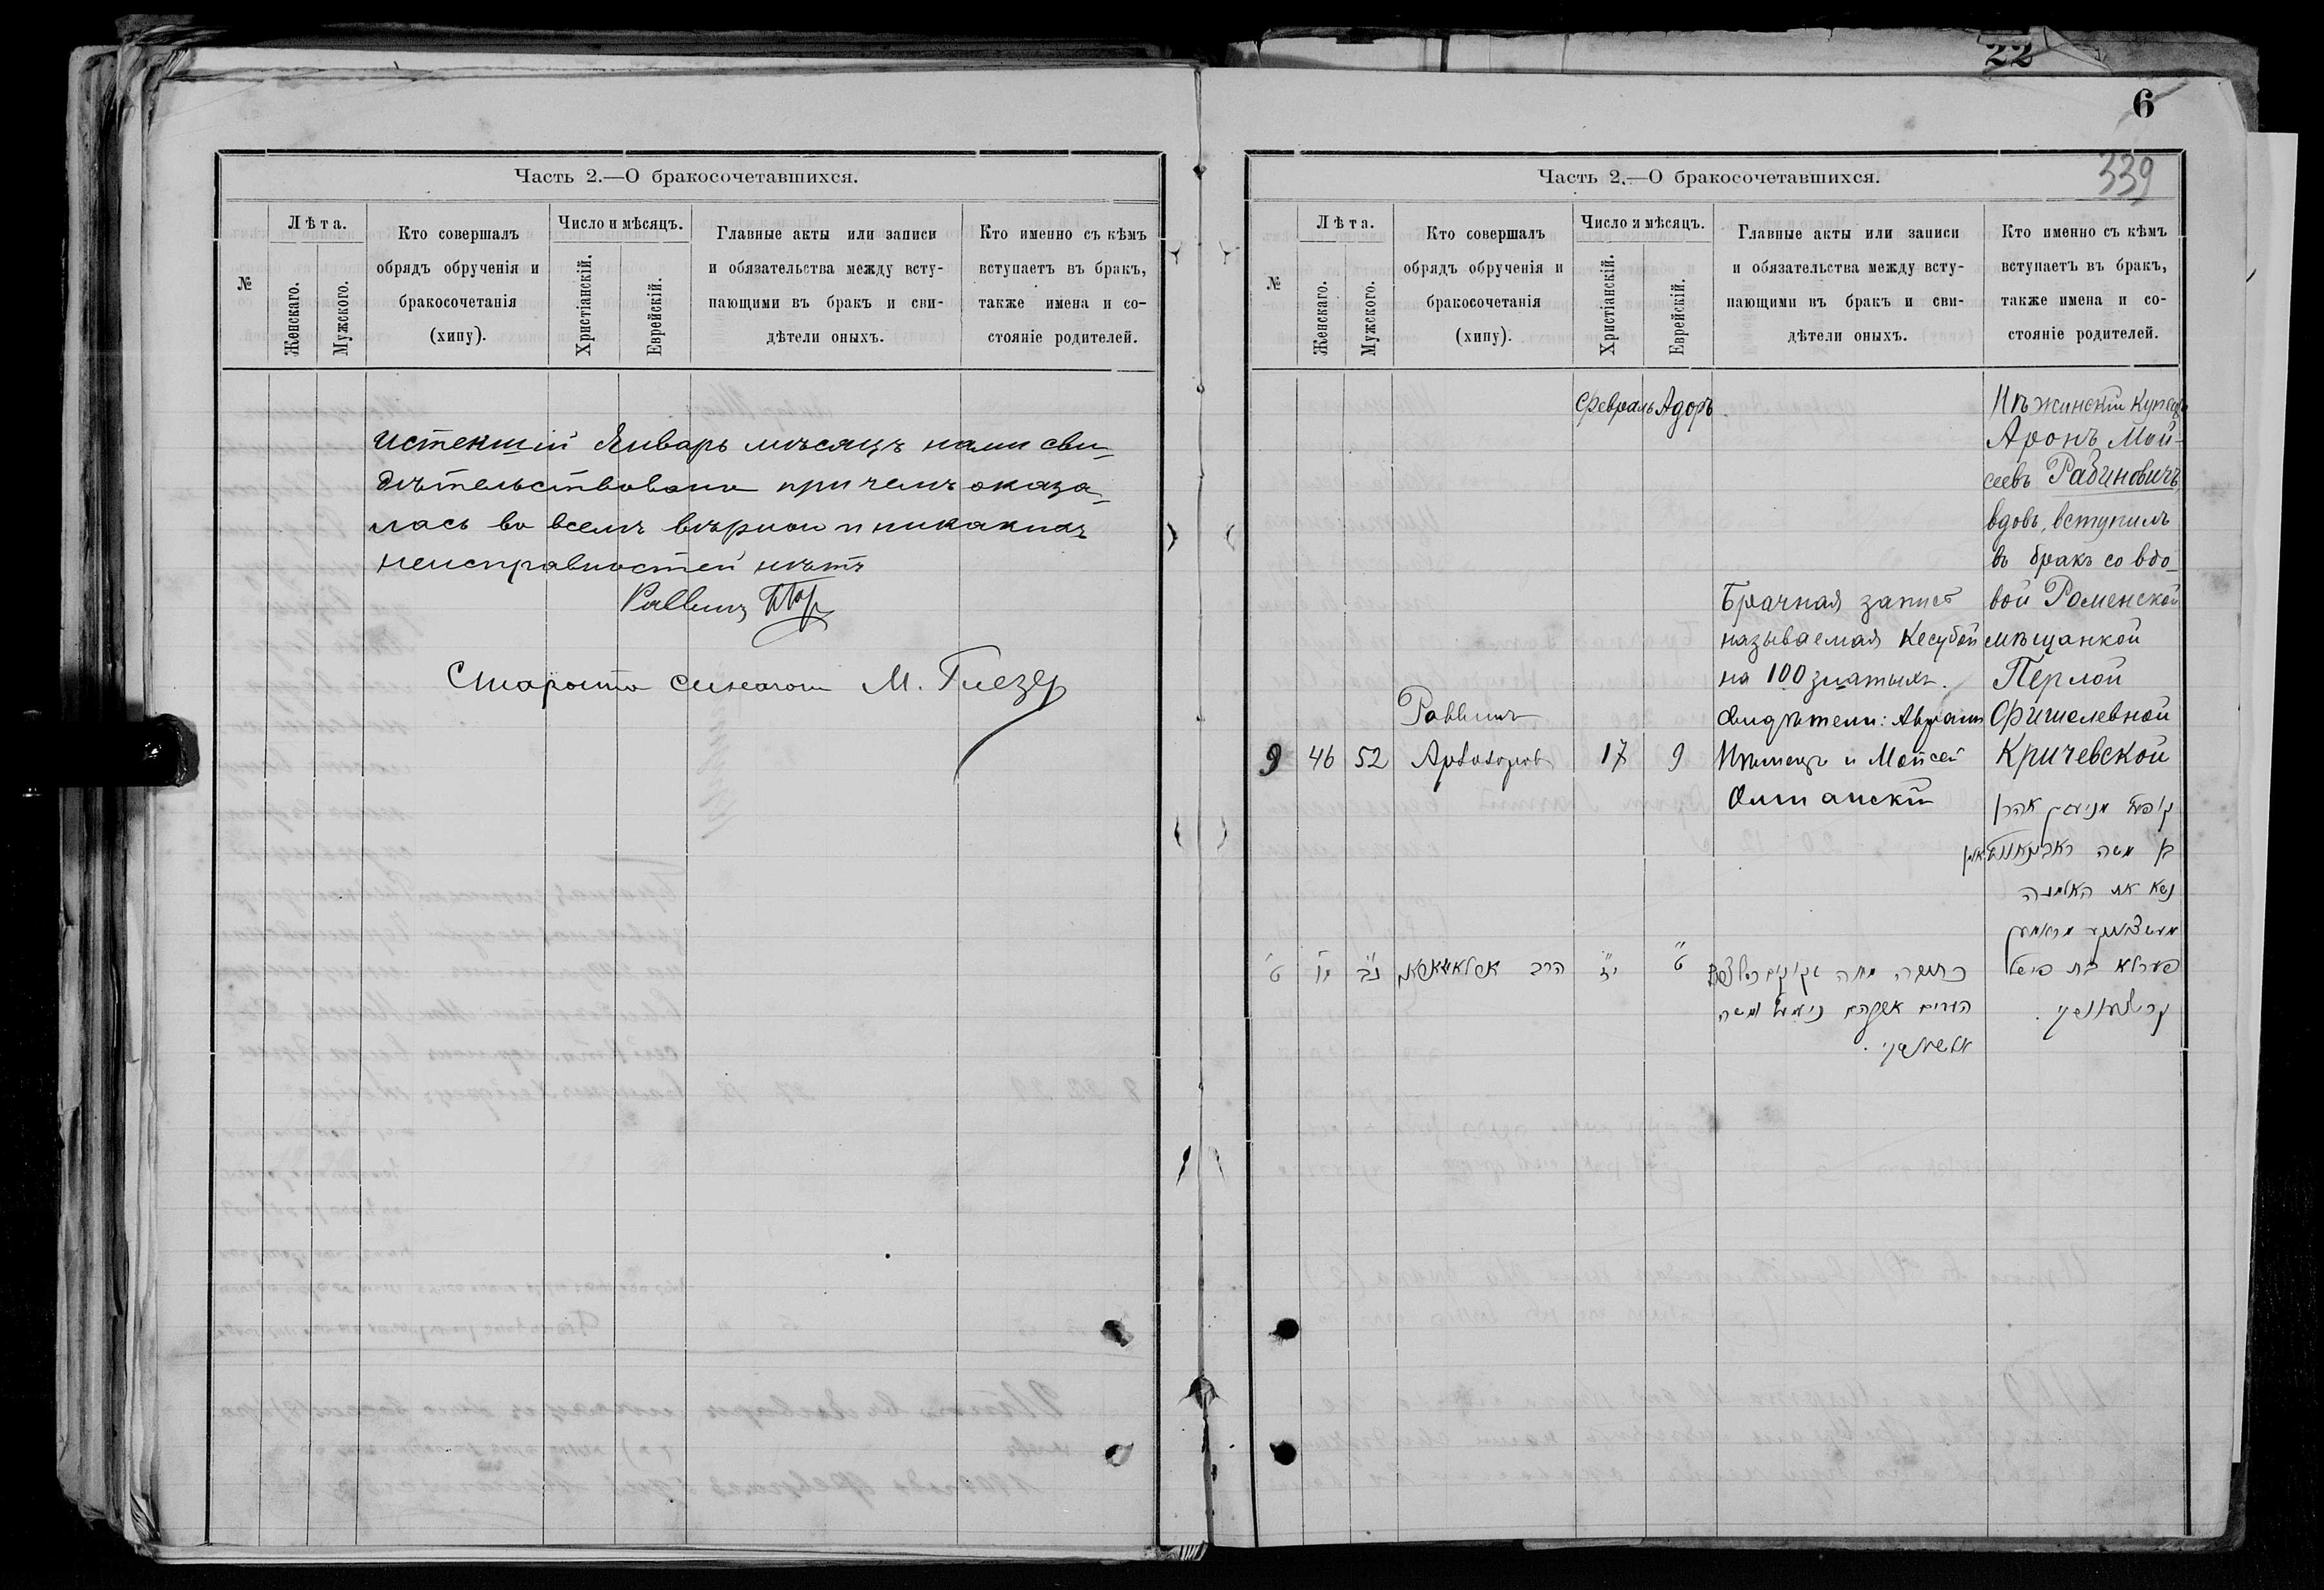 22
6
339
Часть 2.—О бракосочетавшихся.
№
Лѣта.
Женскаго.
Мужского.
Кто совершалъ
обрядъ обрученія и
бракосочетанія
(хипу).
Число и мѣсяцъ.
Христіанскій.
Еврейскій.
Главные акты или записи
и обязательства между всту-
пающими въ бракъ и сви-
дѣтели оныхъ.
Кто именно съ кѣмъ
вступаетъ въ бракъ,
также имена и со-
стояніе родителей.
Истекшій Январь мѣсяцъ нами сви-
дѣтельствована при чемъ оказа-
лась во всемъ вѣрной и никакихъ
неисправностей нѣтъ
Раввинъ
Староста синагоги М. Глезер
Часть 2.—О бракосочетавшихся.
№
Лѣта.
Женскаго.
Мужского.
Кто совершалъ
обрядъ обрученія и
бракосочетанія
(хипу).
Число и мѣсяцъ.
Христіанскій.
Еврейскій.
Главные акты или записи
и обязательства между всту-
пающими въ бракъ и сви-
дѣтели оныхъ.
Кто именно съ кѣмъ
вступаетъ въ бракъ,
также имена и со-
стояніе родителей.
Февраль Адоръ
9
46
52
Раввинъ
17
9
Брачная запись
называемая Кесубой
на 100 златыхъ.
Свидѣтели: Авраам
и Мойсей
Олшанскій
Нѣжинскій Купецъ
Аронъ Мой-
сеевъ Рабиновичъ,
вдовъ, вступилъ
въ бракъ со вдо-
вой Роменской
мѣщанкой
Перлой
Фишелевной
Кричевской
אהרן
בן משה
נשא את האלמנה
פערלא בת פישל
קריטשעווסקי
ט
נב
הרב
יז
ט
כתובה מאה זקוקים
העדים אברהם משה